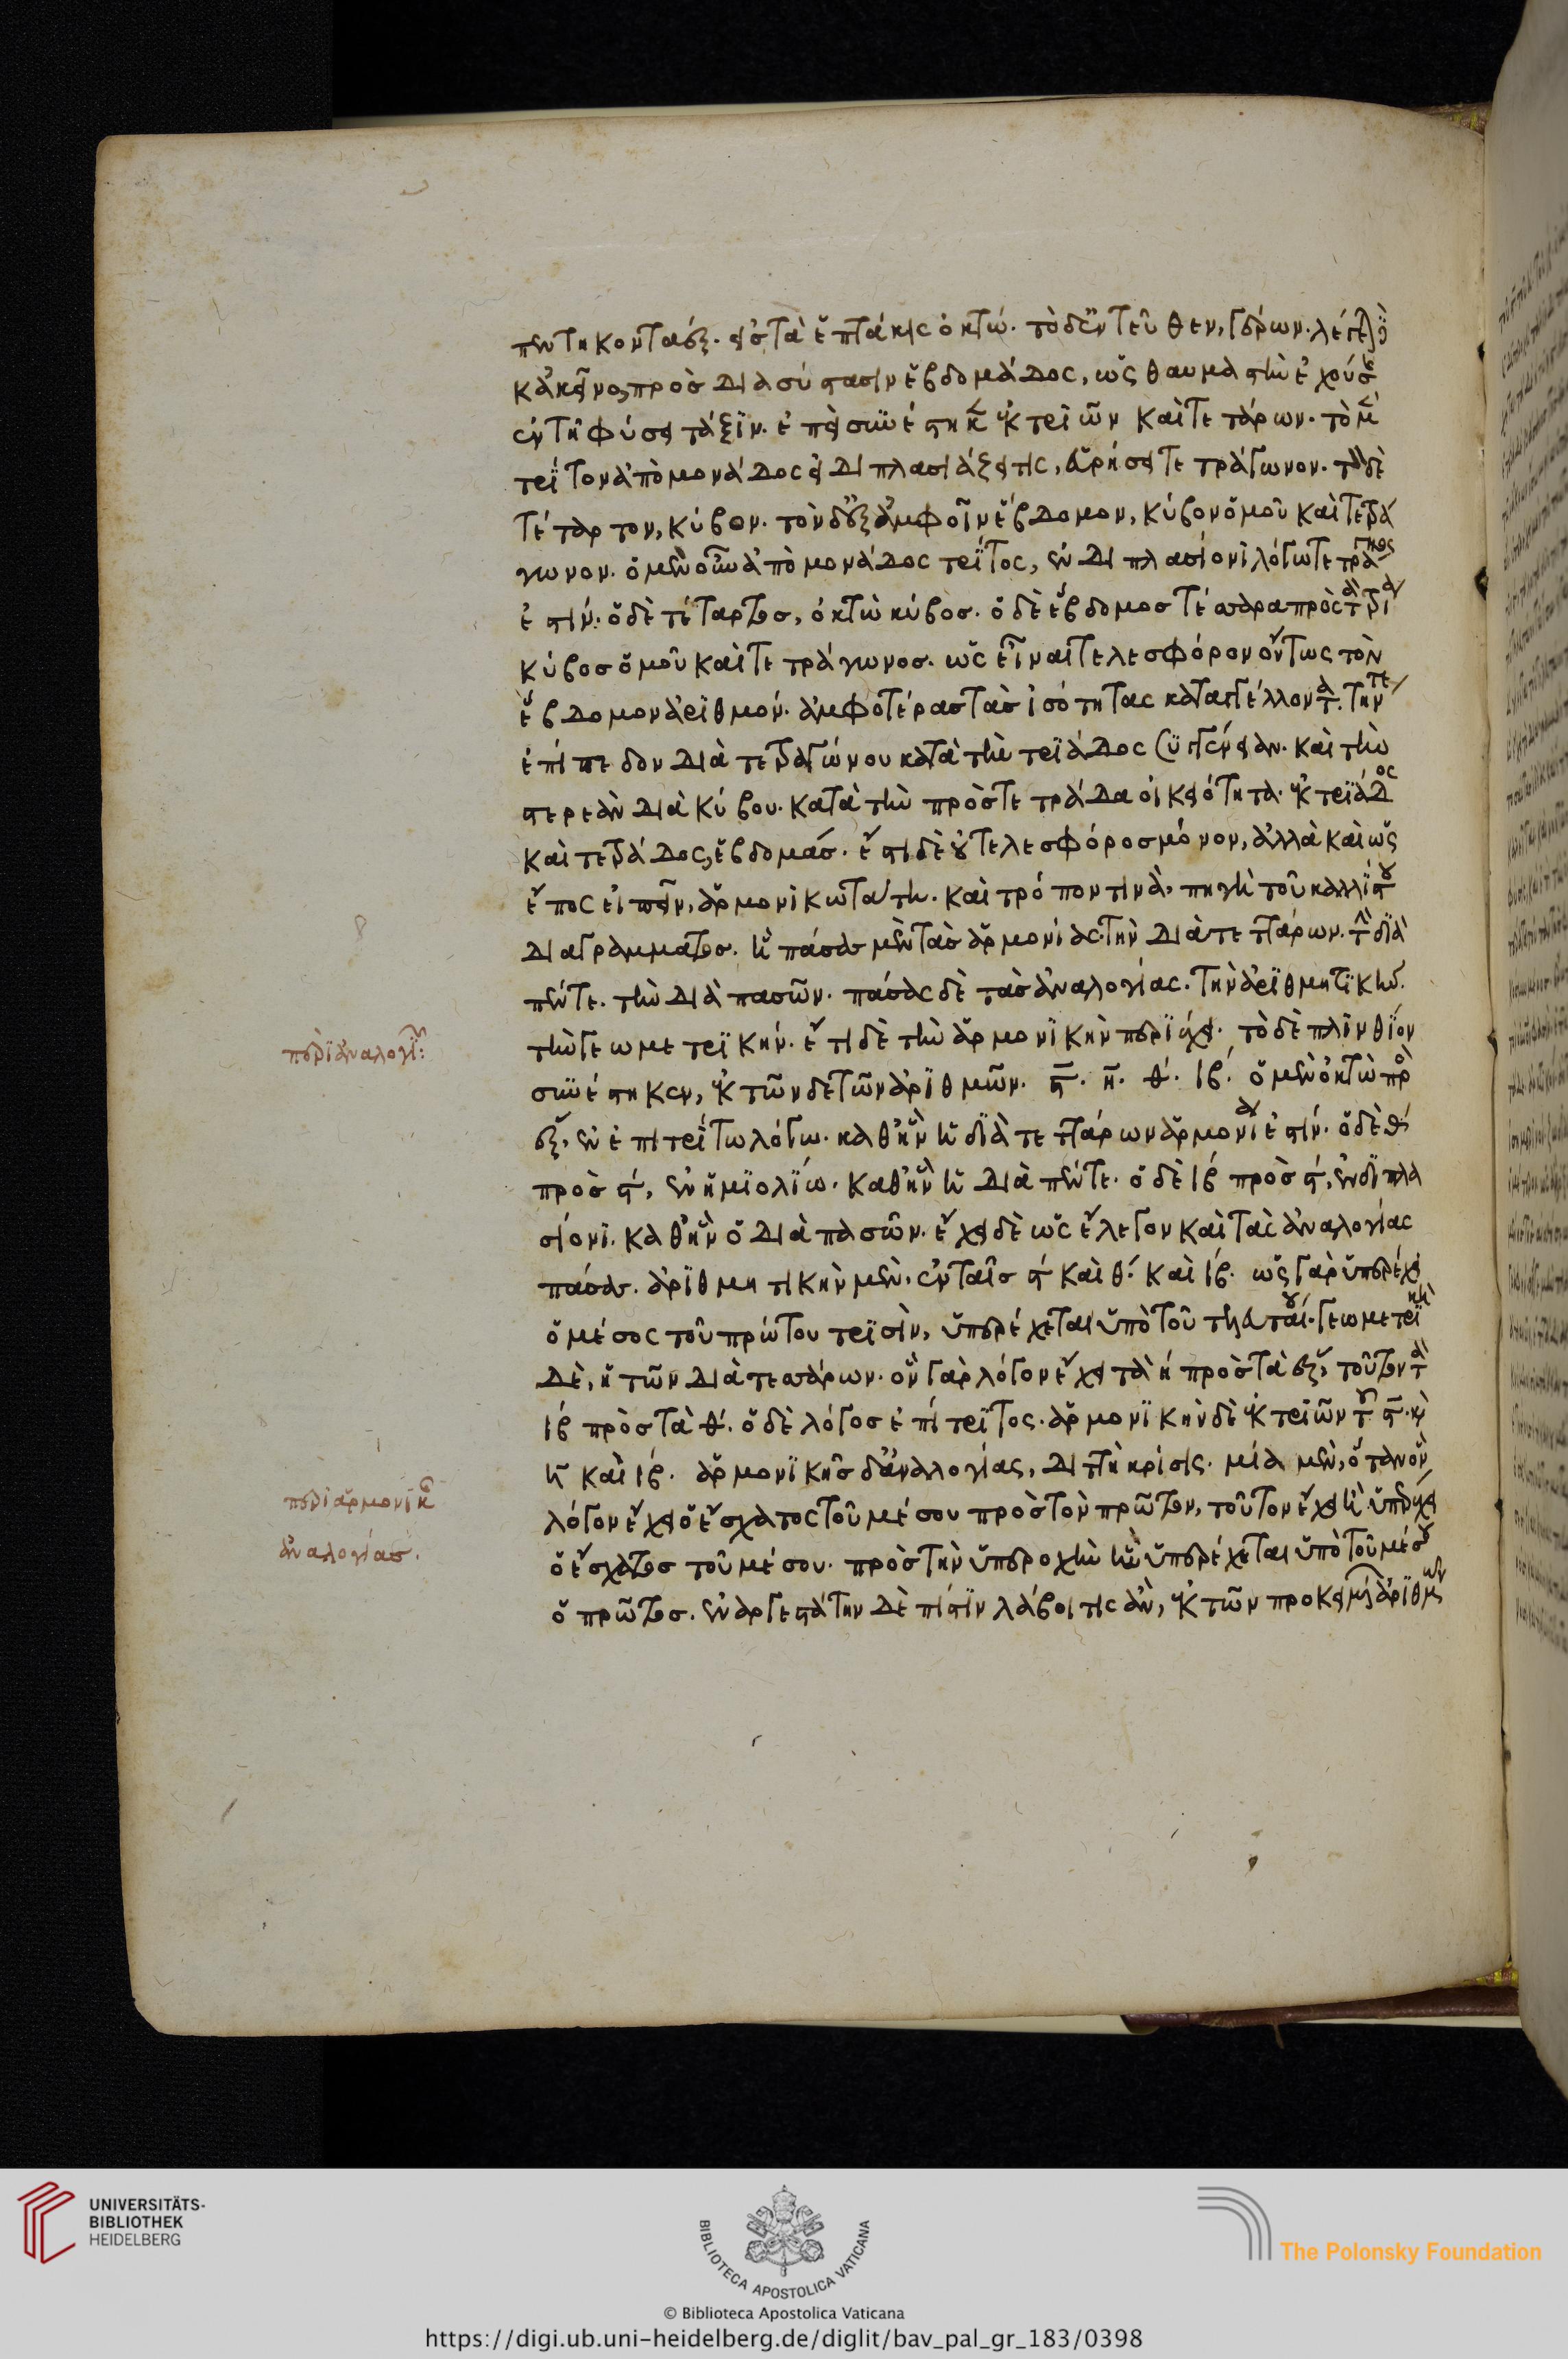 πεντηκονταέξ. εἶτα ἑπτάκις ὀκτώ. τὸ δ' ἐντεῦθεν, γέρων. λέγεται δὲ
κἀκεῖνο, πρὸς διασύστασιν ἑβδομάδος, ὡς θαυμαστὴν ἐχούσης
ἐν τῇ φύσει τάξιν. ἐπεὶ συνέστηκε ἐκ τριῶν καὶ τετάρων. τὸ μὲν
τρίτον ἀπὸ μονάδος εἰ διπλασιάξει τις, εὑρήσει τετράγωνον. τὸν δὲ
τέταρτον, κύβον. τὸν δ' ἐξ ἀμφοῖν ἕβδομον, κύβον ὁμοῦ καὶ τετρά
γωνον. ὁ μὲν οὖν ἀπὸ μονάδος τρίτος, ἐν διπλασίονι λόγω τετράγωνος
ἐστίν. ὁ δὲ τέταρτος, ὀκτὼ κύβος. ὁ δὲ ἕβδομος τέσσαρα πρὸς τὰ
κύβος ὁμοῦ καὶ τετράγωνος. ὡς εἶναι τελεσφόρον ὄντως τὸν
ἕβδομον ἀριθμόν. ἀμφοτέρας τὰς ἰσότητας καταγγέλλοντα. τήν τε
ἐπίπεδον διὰ τετραγώνου κατὰ τὴν τριάδος συγγένειαν. καὶ τὴν
στερεὰν διὰ κύβου. κατὰ τὴν πρὸς τετράδα οἰκειότητα. ἐκ τριάδος
καὶ τετράδος, ἑβδομάς. ἔστι δὲ οὐ τελεσφόρος μόνον, ἀλλὰ καὶ ὡς
ἔπος εἰπεῖν, ἁρμονικωτάτη. καὶ τρόπον τινὰ, πηγὴ τοῦ καλλίστου
διαγράμματος. ἣ πάσας μὲν τὰς ἁρμονίας. τὴν διὰ τεττάρων. τὴν διὰ
πέντε. τὴν διὰ πασῶν. πάσας δὲ τὰς ἀναλογίας. τὴν ἀριθμητικὴν.
τὴν γεωμετρικήν. ἔτι δὲ τὴν ἁρμονικὴν περιέχει. τὸ δὲ πλινθίον
συνέστηκεν, ἐκ τῶνδε τῶν ἀριθμῶν. ϛ. η. θ. ιβ. ὁ μὲν ὀκτὼ πρὸς
ἕξ, ἐν ἐπιτρίτω λόγω. καθ' ἣν ἡ διὰ τεττάρων ἁρμονία ἐστίν. ὁ δὲ θ
πρὸς ϛ, ἐν ἡμιολίω. καθ' ἣν ἡ διὰ πέντε. ὁ δὲ ιβ πρὸς ϛ, ἐν διπλα
σίονι. καθ' ἣν ὁ διὰ πασῶν. ἔχει δὲ ὡς ἔλεγον καὶ τὰς ἀναλογίας
πάσας. ἀριθμητικὴν μὲν, ἐν ταῖς ϛ καὶ θ. καὶ ιβ. ὡς γὰρ ὑπερέχει
ὁ μέσος τοῦ πρώτου τρισὶν, ὑπερέχεται ὑπὸ τοῦ τελευταίου. γεωμετρικὴ
δὲ, ἡ τῶν διὰ τεσσάρων. ὃν γὰρ λόγον ἔχει τὰ η πρὸς τὰ ἕξ, τοῦτον τὰ
ιβ πρὸς τὰ θ. ὁ δὲ λόγος ἐπίτριτος. ἁρμονικὴν δὲ ἐκ τριῶν τοῦ ϛ. καὶ
η καὶ ιβ. ἁρμονικῆς δ' ἀναλογίας, διττὴ κρίσις. μία μὲν, ὅταν ὃν
λόγον ἔχει ὁ ἔσχατος τοῦ μέσου πρὸς τὸν πρῶτον, τοῦτον ἔχει ἡ ὑπερέχει
ὁ ἔσχατος τοῦ μέσου. πρὸς τὴν ὑπεροχὴν ἣν ὑπερέχεται ὑπὸ τοῦ μέσου
ὁ πρῶτος. ἐναργεστάτην δὲ πίστιν λάβοι τις ἂν, ἐκ τῶν προκειμένων ἀριθμῶν
περὶ ἀναλογίας:
περὶ ἁρμονικῆς
ἀναλογίας.
UNIVERSITÄTS-
BIBLIOTHEK
HEIDELBERG
BIBLIOTECA APOSTOLICA VATICANA
The Polonsky Foundation
© Biblioteca Apostolica Vaticana
https://digi.ub.uni-heidelberg.de/diglit/bav_pal_gr_183/0398